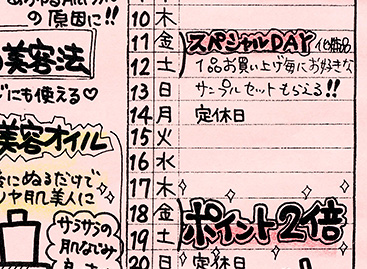 の原因に!!
美容法
にも使える♡
美容オイル
にぬるだけで
ツヤ肌美人に
サラサラの
肌なじみ
10 木
11 金 スペシャルDAY 化粧品
12 土 1品お買い上げ毎にお好きな
13 日 サンプルセットもらえる!!
14 月 定休日
15 火
16 水
17 木
18 金 ポイント2倍
19 土
20 日 定休日